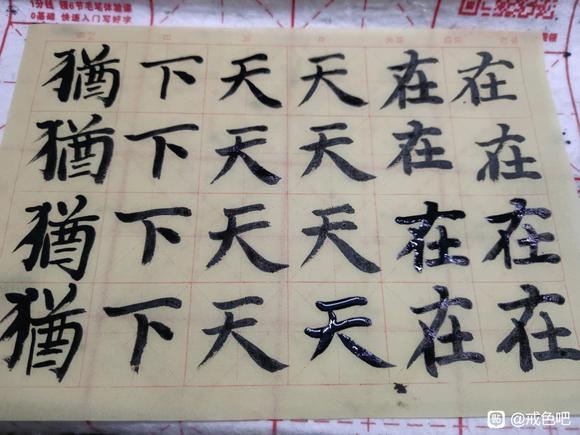 1分钱 领6节毛笔体验课
0基础 快速入门写好字
猶下天天在在
猶下天天在在
猶下天天在在
猶下天天在在
贴 @戒色吧